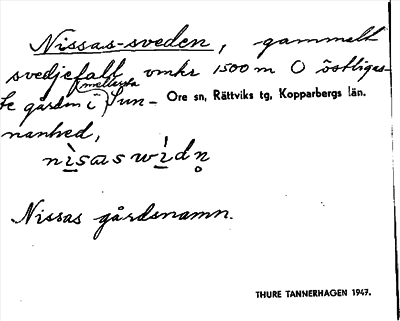 Nissas-sveden, gammalt
svedjefall omkr 1500 m O östligas-
te gården i (mellersta) Sun-
Ore sn, Rättviks tg, Kopparbergs län.
nanhed,
Nissas gårdsnamn.
THURE TANNERHAGEN 1947.